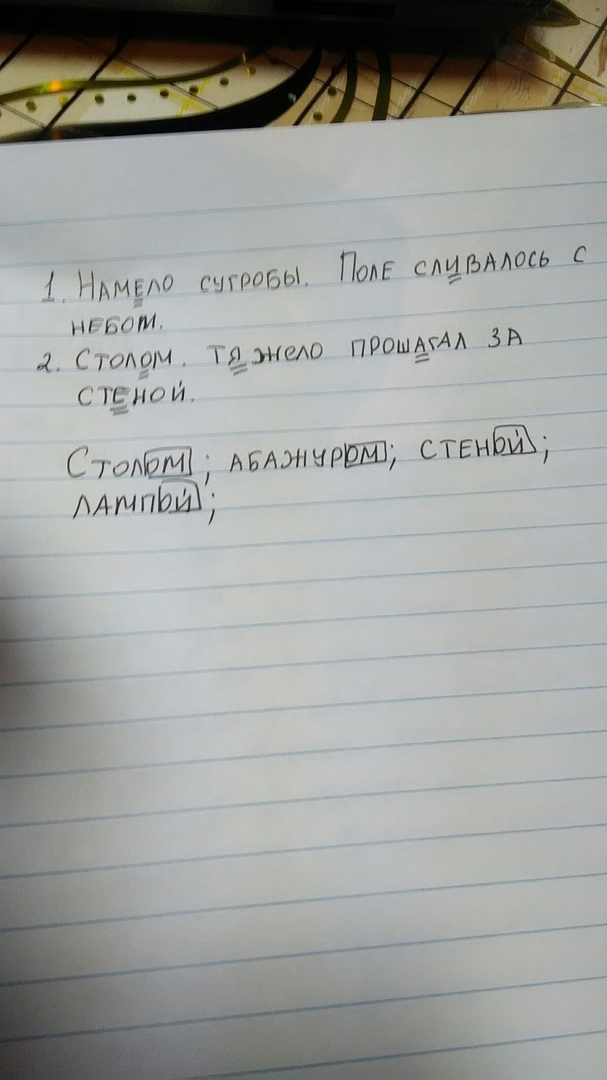 1. НАМЕЛО СУГРОБЫ. ПОЛЕ СЛИВАЛОСЬ С
НЕБОМ.
2. СТОЛОМ. ТЯЖЕЛО ПРОШАГАЛ ЗА
СТЕНОЙ.
СТОЛОМ; АБАЖУРОМ; СТЕНОЙ;
ЛАМПОЙ;